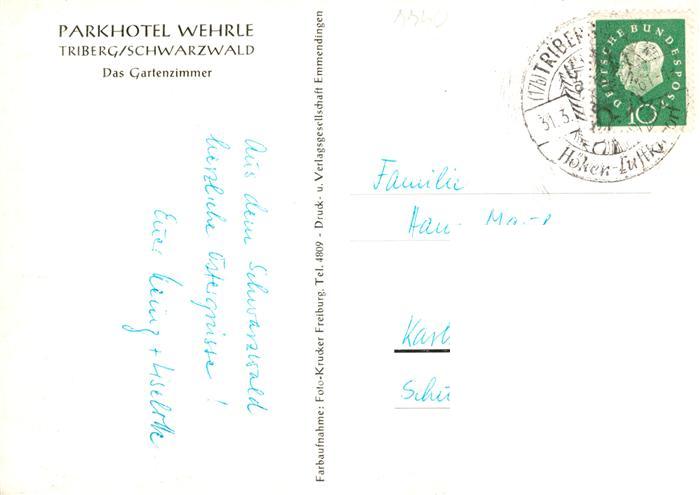 PARKHOTEL WEHRLE
TRIBERG/SCHWARZWALD
Das Gartenzimmer
Aus dem Schwarzwald
herzliche Ostergrüsse!
Euer Heinz + Liselotte
Farbaufnahme: Foto-Krucker Freiburg, Tel. 4809 - Druck- u. Verlagsgesellschaft Emmendingen
DEUTSCHE BUNDESPOST
10
(17b) TRIBER
31.3.
Höhen-Luftku
Familie
Han
Karl
Schü